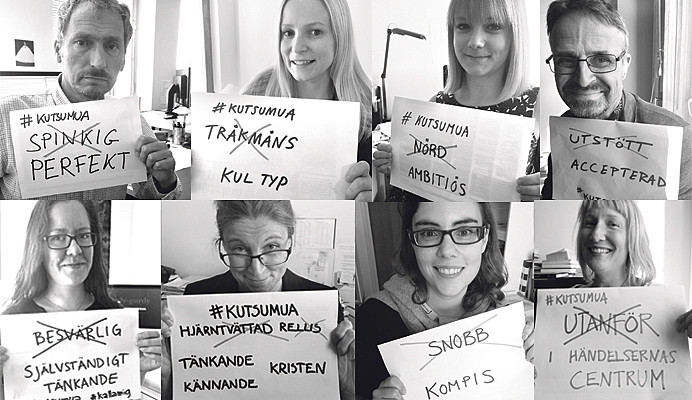 #KUTSUMUA
SPINKIG
PERFEKT
#KUTSUMUA
TRÅKMÅNS
KUL TYP
#KUTSUMUA
NÖRD
AMBITIÖS
UTSTÖTT
ACCEPTERAD
BESVÄRLIG
SJÄLVSTÄNDIGT
TÄNKANDE
#kallamig
#KUTSUMUA
HJÄRNTVÄTTAD RELLUS
TÄNKANDE KRISTEN
KÄNNANDE
SNOBB
KOMPIS
#KUTSUMUA
UTANFÖR
I HÄNDELSERNAS
CENTRUM